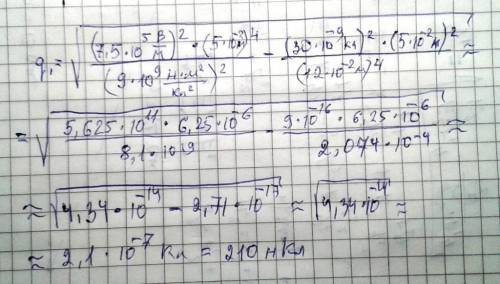 q₁ = √((7,5·10⁵ В/м)²·(5·10⁻²м)⁴ / (9·10⁹ Н·м²/Кл²)² - (30·10⁻⁹Кл)²·(5·10⁻²м)² / (12·10⁻²м)⁴) ≈
= √(5,625·10¹¹·6,25·10⁻⁶ / 8,1·10¹⁹ - 9·10⁻¹⁶·6,25·10⁻⁶ / 2,074·10⁻⁴) ≈
≈ √(4,34·10⁻¹⁴ - 2,71·10⁻¹⁷) ≈ √(4,34·10⁻¹⁴) ≈
≈ 2,1·10⁻⁷ Кл = 210 нКл